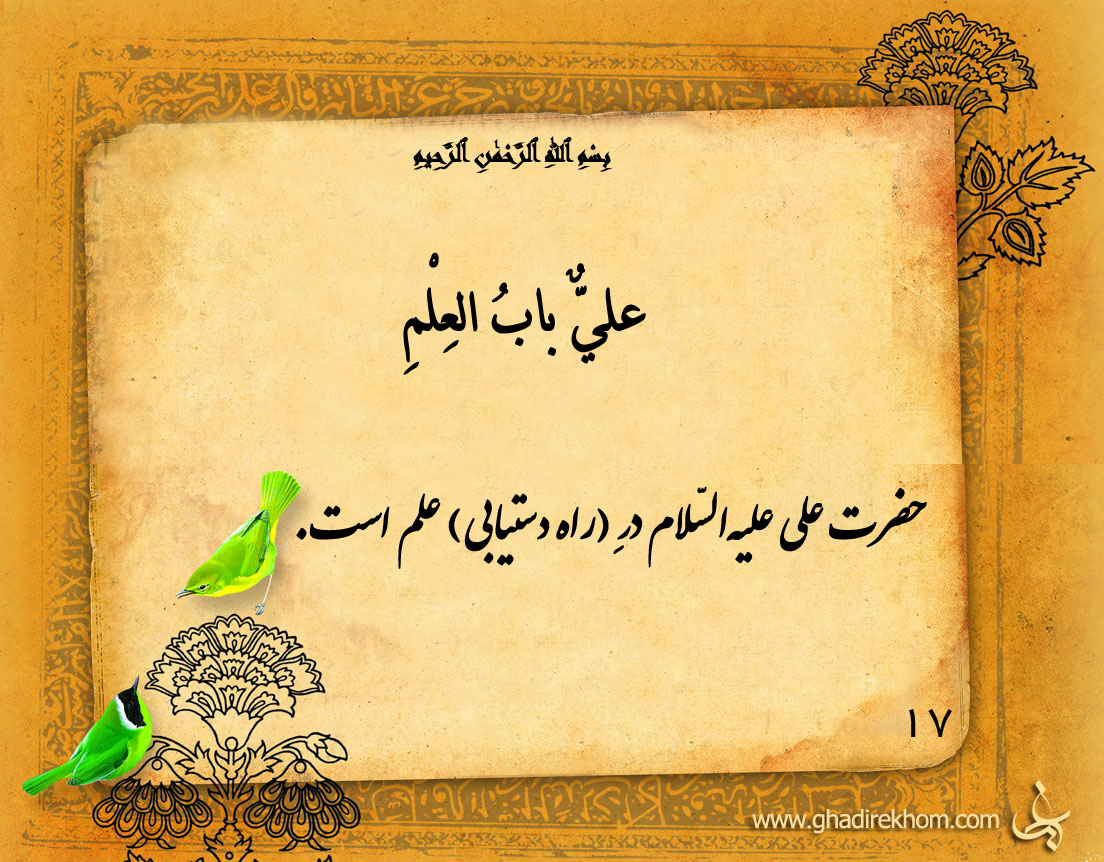 بِسْمِ ٱللَّهِ ٱلرَّحْمَٰنِ ٱلرَّحِيمِ
عليٌّ بابُ العِلْمِ
حضرت علی علیه‌السّلام درِ (راه دستیابی) علم است.
۱۷
www.ghadirekhom.com